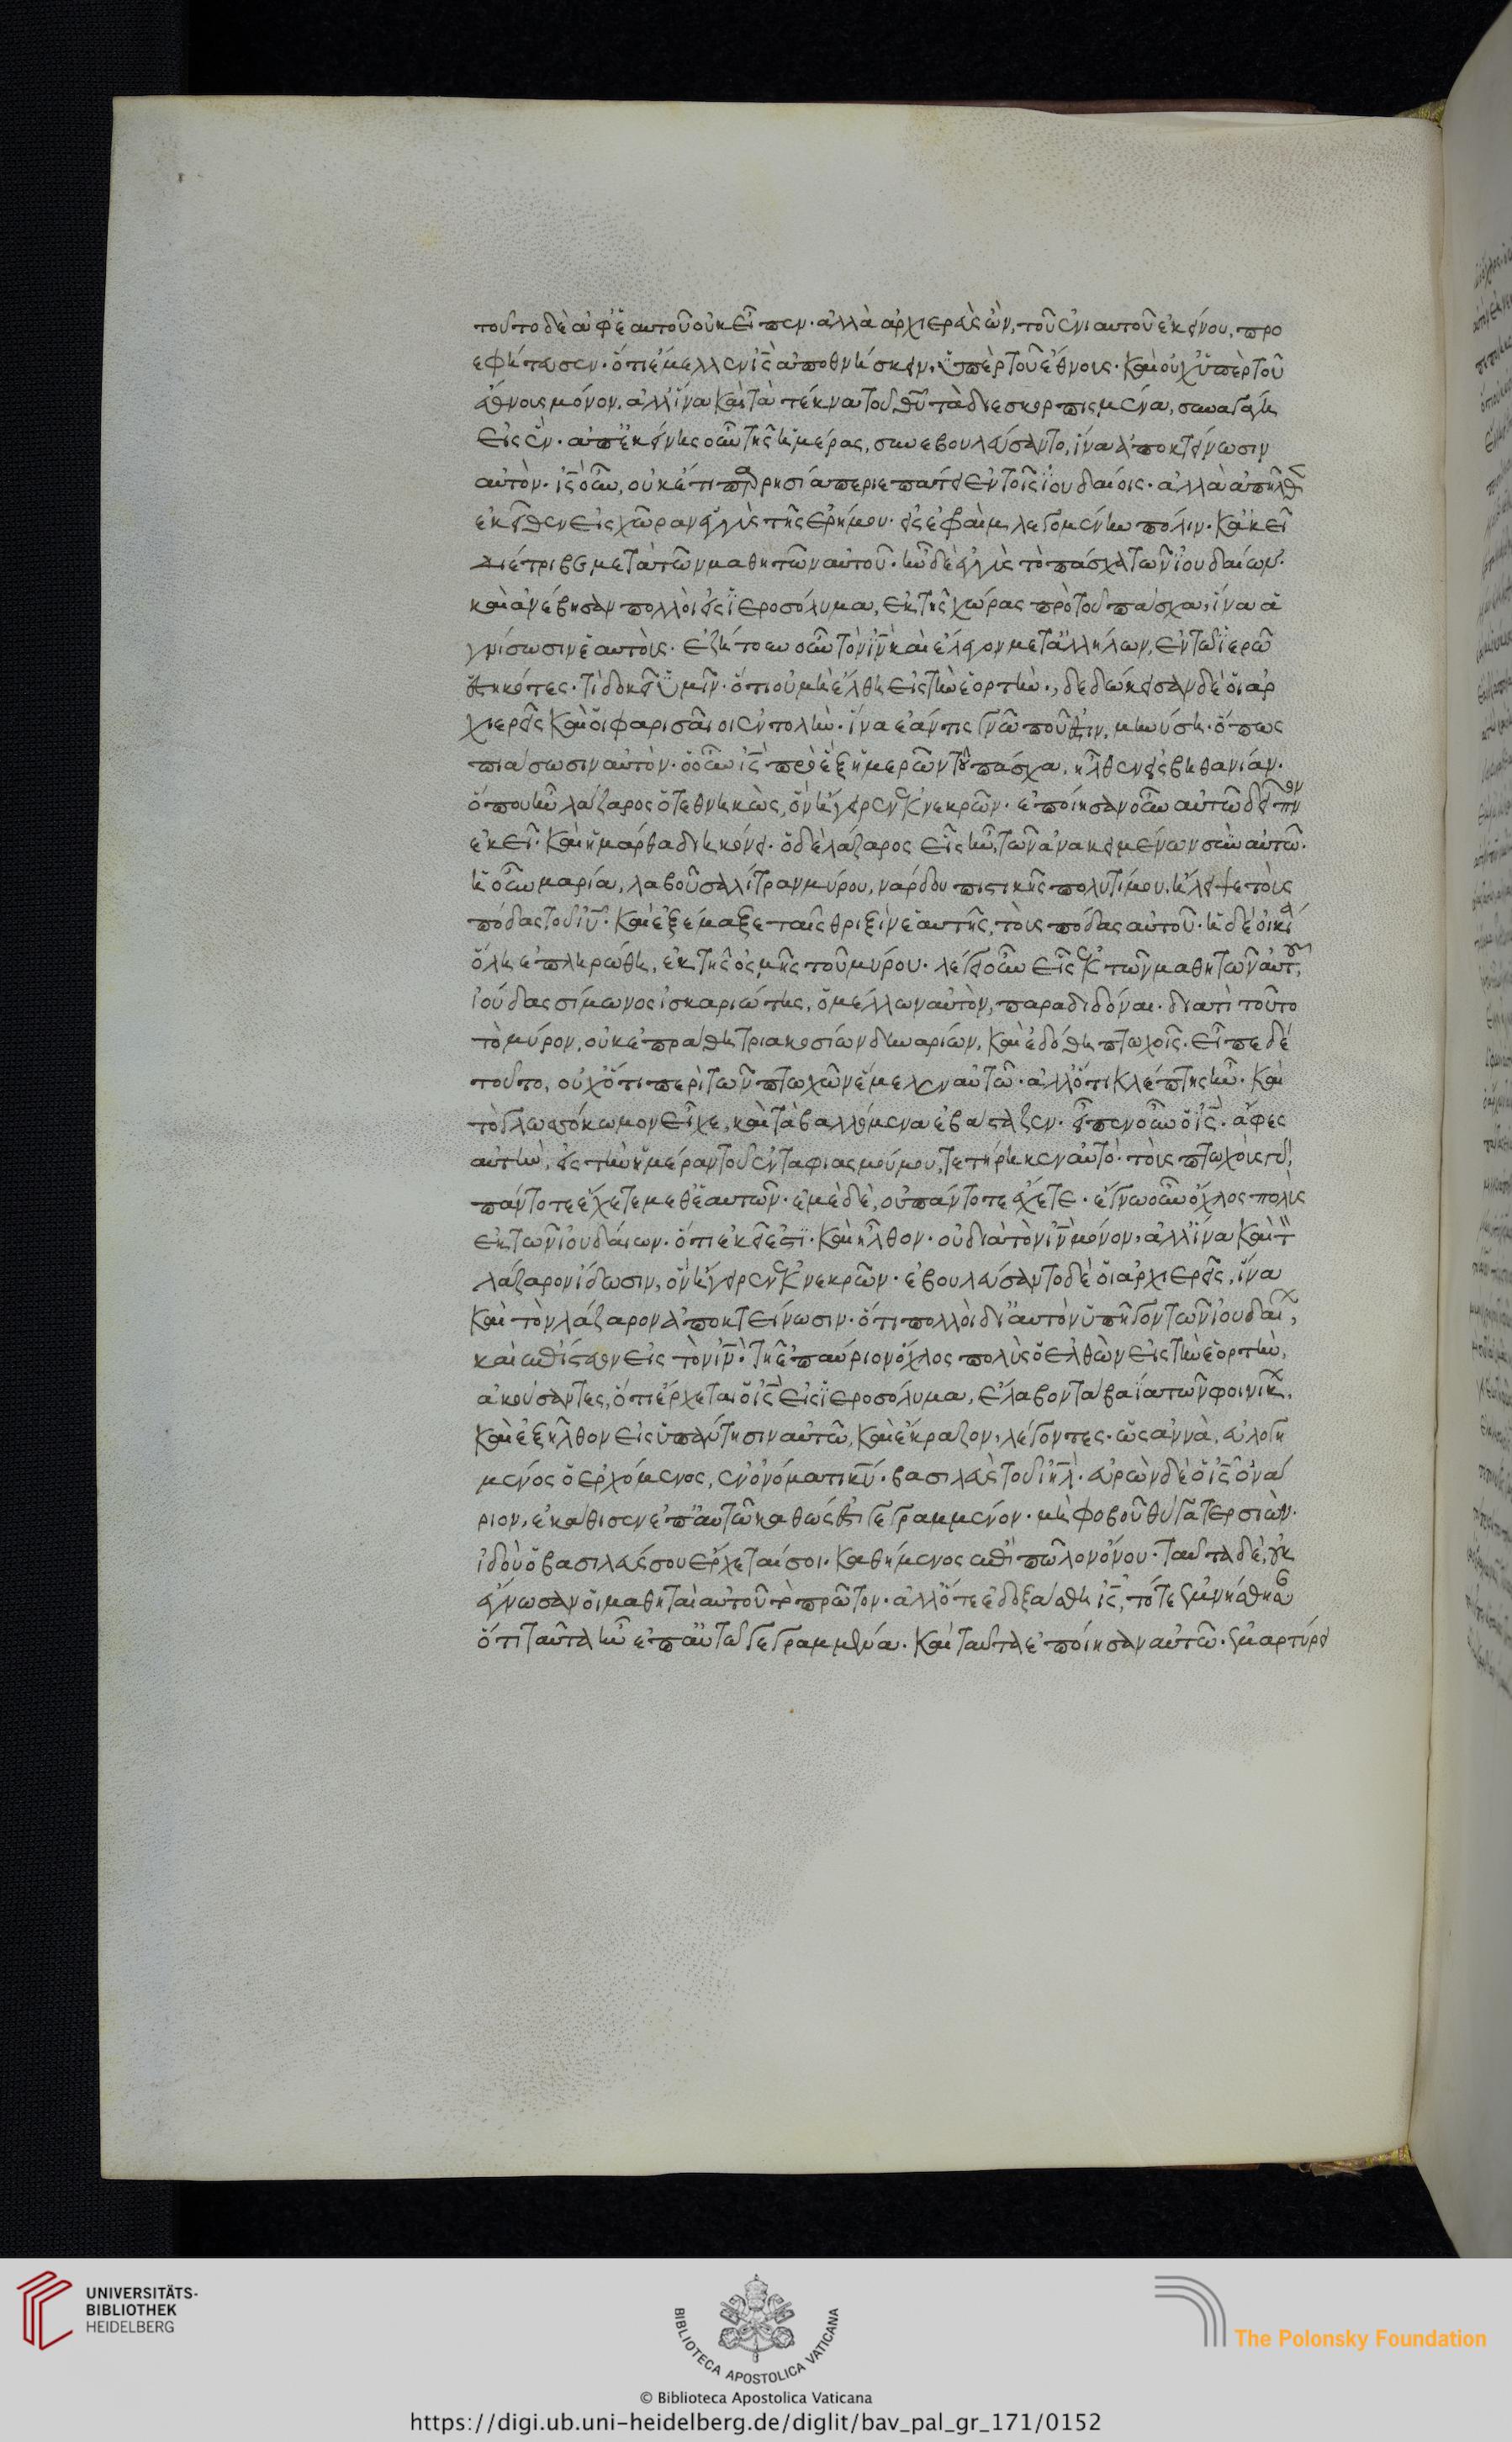 τοῦτο δὲ ἀφ' ἑαυτοῦ οὐκ εἶπεν· ἀλλὰ ἀρχιερεὺς ὢν, τοῦ ἐνιαυτοῦ ἐκείνου, προ
εφήτευσεν· ὅτι ἔμελλεν ἰς ἀποθνήσκειν, ὑπὲρ τοῦ ἔθνους· καὶ οὐχ ὑπὲρ τοῦ
ἔθνους μόνον, ἀλλ' ἵνα καὶ τὰ τέκνα τοῦ θυ τὰ διεσκορπισμένα, συναγάγη
εἰς ἕν· ἀπ' ἐκείνης οὖν τῆς ἡμέρας, συνεβουλεύσαντο, ἵνα ἀποκτείνωσιν
αὐτὸν· ἰς οὖν, οὐκέτι παρρησία περιεπάτει ἐν τοῖς ἰουδαίοις· ἀλλὰ ἀπῆλθ
ἐκεῖθεν εἰς χῶραν ἐγγὺς τῆς ἐρήμου· εἰς ἐφραὶμ λεγομένην πόλιν· κἀκεῖ
διέτριβε μετὰ τῶν μαθητῶν αὐτοῦ· ἦν δὲ ἐγγὺς τὸ πάσχα τῶν ἰουδαίων·
καὶ ἀνέβησαν πολλοὶ εἰς ἱεροσόλυμα, ἐκ τῆς χώρας πρὸ τοῦ πάσχα, ἵνα ἁ
γνίσωσιν ἑαυτοὺς· ἐζήτουν οὖν τὸν ἰν καὶ ἔλεγον μετ' ἀλλήλων, ἐν τῶ ἱερῶ
ἑστηκότες· τί δοκεῖ ὑμῖν· ὅτι οὐ μὴ ἔλθη εἰς τὴν ἑορτήν·, δεδώκεισαν δὲ οἱ ἀρ
χιερεῖς καὶ οἱ φαρισαῖοι ἐντολὴν· ἵνα ἐάν τις γνῶ ποῦ ἐστιν, μηνύση· ὅπως
πιάσωσιν αὐτὸν· ὁ οὖν ἰς πρὸ ἓξ ἡμερῶν τοῦ πάσχα, ἦλθεν εἰς βηθανίαν·
ὅπου ἦν λάζαρος ὁ τεθνηκὼς, ὃν ἤγειρεν ἐκ νεκρῶν· ἐποίησαν οὖν αὐτῶ δεῖπνον
ἐκεῖ· καὶ ἡ μάρθα διηκόνει· ὁ δὲ λάζαρος εἷς ἦν, τῶν ἀνακειμένων σὺν αὐτῶ·
ἡ οὖν μαρία, λαβοῦσα λίτραν μύρου, νάρδου πιστικῆς πολυτίμου, ἤλειψε τοὺς
πόδας τοῦ ἰυ· καὶ ἐξέμαξε ταῖς θριξὶν ἑαυτῆς, τοὺς πόδας αὐτοῦ· ἡ δὲ οἰκία
ὅλη ἐπληρώθη, ἐκ τῆς ὀσμῆς τοῦ μύρου· λέγει οὖν εἷς ἐκ τῶν μαθητῶν αὐτοῦ,
ἰούδας σίμωνος ἰσκαριώτης, ὁ μέλλων αὐτὸν, παραδιδόναι· διατὶ τοῦτο
τὸ μύρον, οὐκ ἐπράθη τριακοσίων δηναρίων, καὶ ἐδόθη πτωχοῖς· εἶπε δὲ
τοῦτο, οὐχ ὅτι περὶ τῶν πτωχῶν ἔμελεν αὐτῶ· ἀλλ' ὅτι κλέπτης ἦν· καὶ
τὸ γλωσσόκωμον εἶχε, καὶ τὰ βαλλόμενα ἐβάσταζεν· εἶπεν οὖν ὁ ἰς· ἄφες
αὐτὴν, εἰς τὴν ἡμέραν τοῦ ἐνταφιασμοῦ μου, τετήρηκεν αὐτό· τοὺς πτωχοὺς γὰρ,
πάντοτε ἔχετε μεθ' ἑαυτῶν· ἐμὲ δὲ, οὐ πάντοτε ἔχετε· ἔγνω οὖν ὄχλος πολὺς
ἐκ τῶν ἰουδαίων· ὅτι ἐκεῖ ἐστι· καὶ ἦλθον· οὐ διὰ τὸν ἰν μόνον, ἀλλ' ἵνα καὶ τὸν
λάζαρον ἴδωσιν, ὃν ἤγειρεν ἐκ νεκρῶν· ἐβουλεύσαντο δὲ οἱ ἀρχιερεῖς, ἵνα
καὶ τὸν λάζαρον ἀποκτείνωσιν· ὅτι πολλοὶ δι' αὐτὸν ὑπῆγον τῶν ἰουδαίων,
καὶ ἐπίστευον εἰς τὸν ἰν· τῆ ἐπαύριον ὄχλος πολὺς ὁ ἐλθὼν εἰς τὴν ἑορτὴν,
ἀκούσαντες, ὅτι ἔρχεται ὁ ἰς εἰς ἱεροσόλυμα, ἔλαβον τὰ βαΐα τῶν φοινίκων,
καὶ ἐξῆλθον εἰς ὑπάντησιν αὐτῶ, καὶ ἔκραζον, λέγοντες· ὡσαννὰ, εὐλογη
μένος ὁ ἐρχόμενος, ἐν ὀνόματι κυ· βασιλεὺς τοῦ ἰηλ· εὑρὼν δὲ ὁ ἰς ὀνά
ριον, ἐκάθισεν ἐπ' αὐτῶ καθώς ἐστι γεγραμμένον· μὴ φοβοῦ θύγατερ σιὼν·
ἰδοὺ ὁ βασιλεύς σου ἔρχεταί σοι· καθήμενος ἐπὶ πῶλον ὄνου· ταῦτα δὲ, οὐκ
ἔγνωσαν οἱ μαθηταὶ αὐτοῦ τὸ πρῶτον· ἀλλ' ὅτε ἐδοξάσθη ἰς, τότε ἐμνήσθησαν
ὅτι ταῦτα ἦν ἐπ' αὐτῶ γεγραμμένα· καὶ ταῦτα ἐποίησαν αὐτῶ· ἐμαρτύρει
UNIVERSITÄTS-
BIBLIOTHEK
HEIDELBERG
BIBLIOTECA APOSTOLICA VATICANA
© Biblioteca Apostolica Vaticana
The Polonsky Foundation
https://digi.ub.uni-heidelberg.de/diglit/bav_pal_gr_171/0152